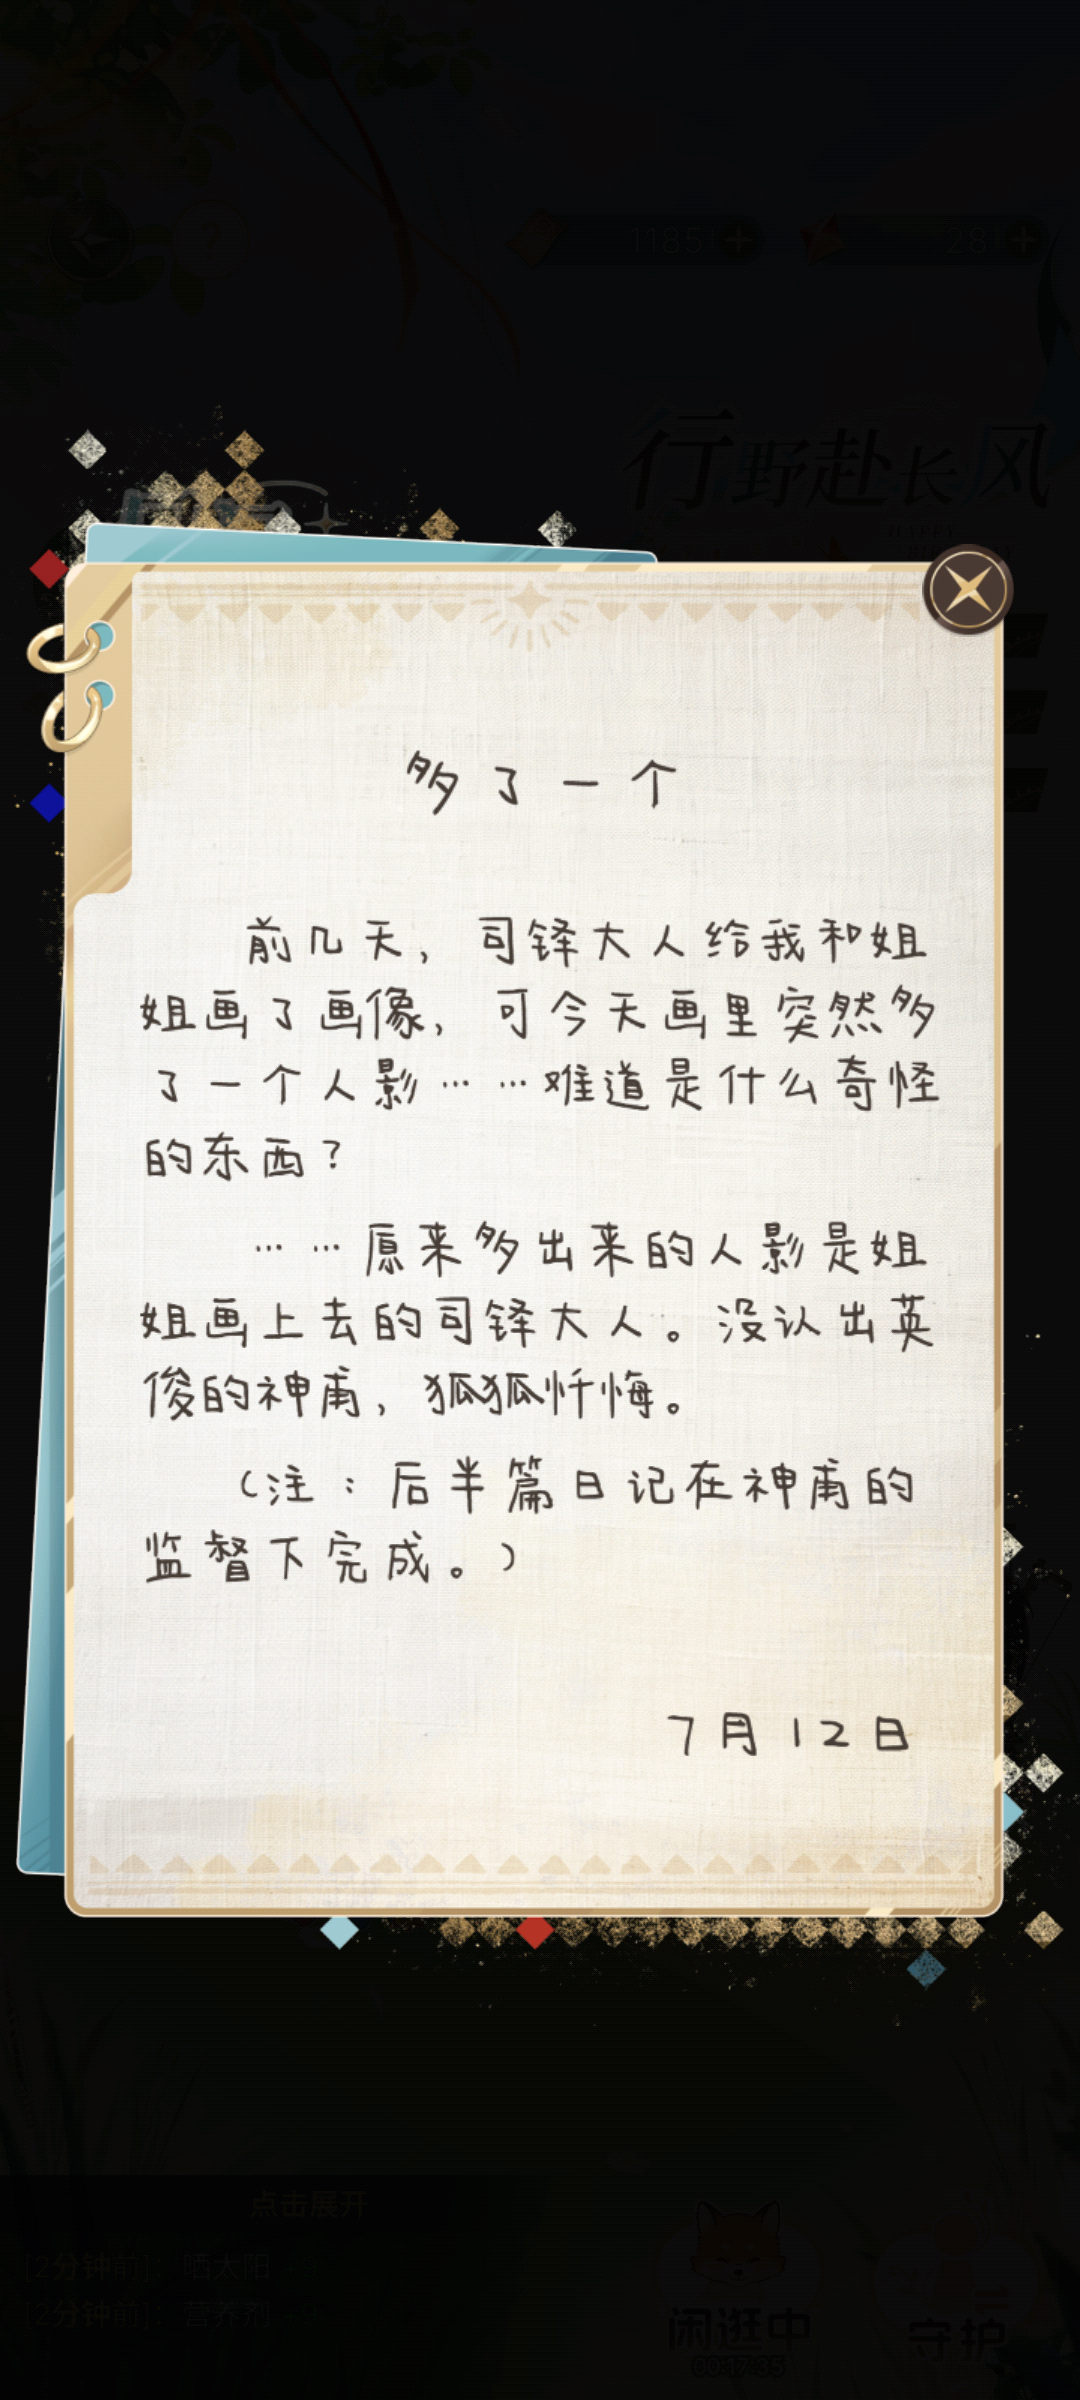 1185
28
行野赴长风
多了一个
前几天，司铎大人给我和姐
姐画了画像，可今天画里突然多
了一个人影……难道是什么奇怪
的东西？
……原来多出来的人影是姐
姐画上去的司铎大人。没认出英
俊的神甫，狐狐忏悔。
（注：后半篇日记在神甫的
监督下完成。）
7月12日
点击展开
[2分钟前]：晒太阳 +9
[2分钟前]：营养剂 +9
闲逛中
00:17:35
守护